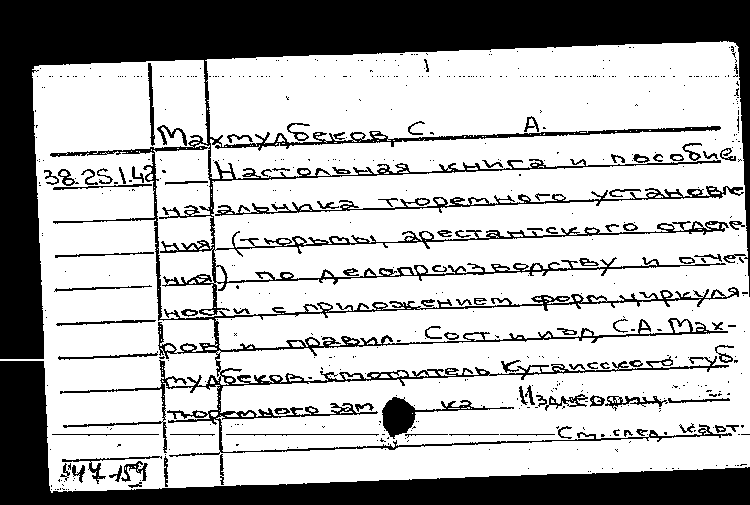 Махтудбеков, С. А.
38.25.1.42. Настольная книга и пособие
начальника тюремного установле
ния (тюрьмы, арестантского отделе
ния), по делопроизводству и отчет
ности, с приложением форм, циркуля-
ров и правил. Сост. и изд. С.А. Мах-
тудбеков. смотритель Кутаисского губ.
тюремного зам ка. Изд. неофиц.
См. след. карт.
547-159